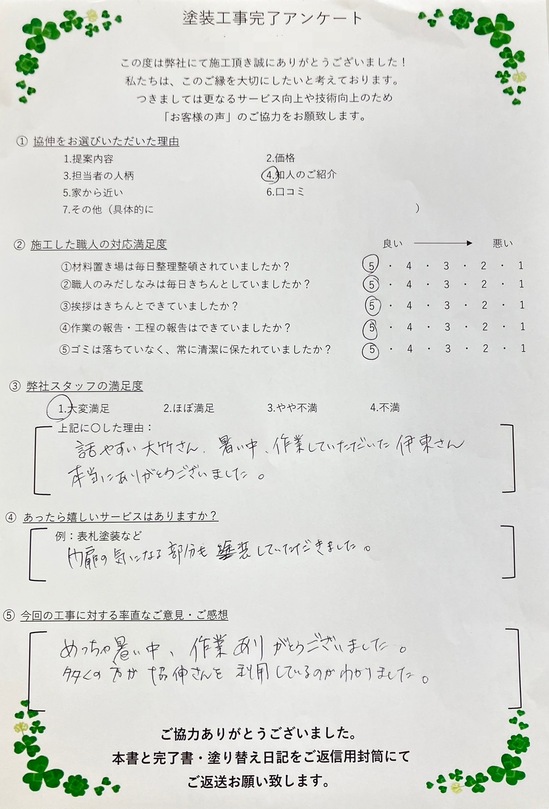 塗装工事完了アンケート
この度は弊社にて施工頂き誠にありがとうございました！
私たちは、このご縁を大切にしたいと考えております。
つきましては更なるサービス向上や技術向上のため
「お客様の声」のご協力をお願致します。
① 協伸をお選びいただいた理由
1.提案内容 2.価格
3.担当者の人柄 4.知人のご紹介
5.家から近い 6.口コミ
7.その他（具体的に ）
② 施工した職人の対応満足度 良い 悪い
①材料置き場は毎日整理整頓されていましたか？ 5 ・ 4 ・ 3 ・ 2 ・ 1
②職人のみだしなみは毎日きちんとしていましたか？ 5 ・ 4 ・ 3 ・ 2 ・ 1
③挨拶はきちんとできていましたか？ 5 ・ 4 ・ 3 ・ 2 ・ 1
④作業の報告・工程の報告はできていましたか？ 5 ・ 4 ・ 3 ・ 2 ・ 1
⑤ゴミは落ちていなく、常に清潔に保たれていましたか？ 5 ・ 4 ・ 3 ・ 2 ・ 1
③ 弊社スタッフの満足度
1.大変満足 2.ほぼ満足 3.やや不満 4.不満
上記に〇した理由：
話やすい大竹さん、暑い中、作業していただいた伊東さん
本当にありがとうございました。
④ あったら嬉しいサービスはありますか？
例：表札塗装など
門扉の気になる部分も塗装していただきました。
⑤ 今回の工事に対する率直なご意見・ご感想
めっちゃ暑い中、作業ありがとうございました。
多くの方が協伸さんを利用しているのがわかりました。
ご協力ありがとうございました。
本書と完了書・塗り替え日記をご返信用封筒にて
ご返送お願い致します。